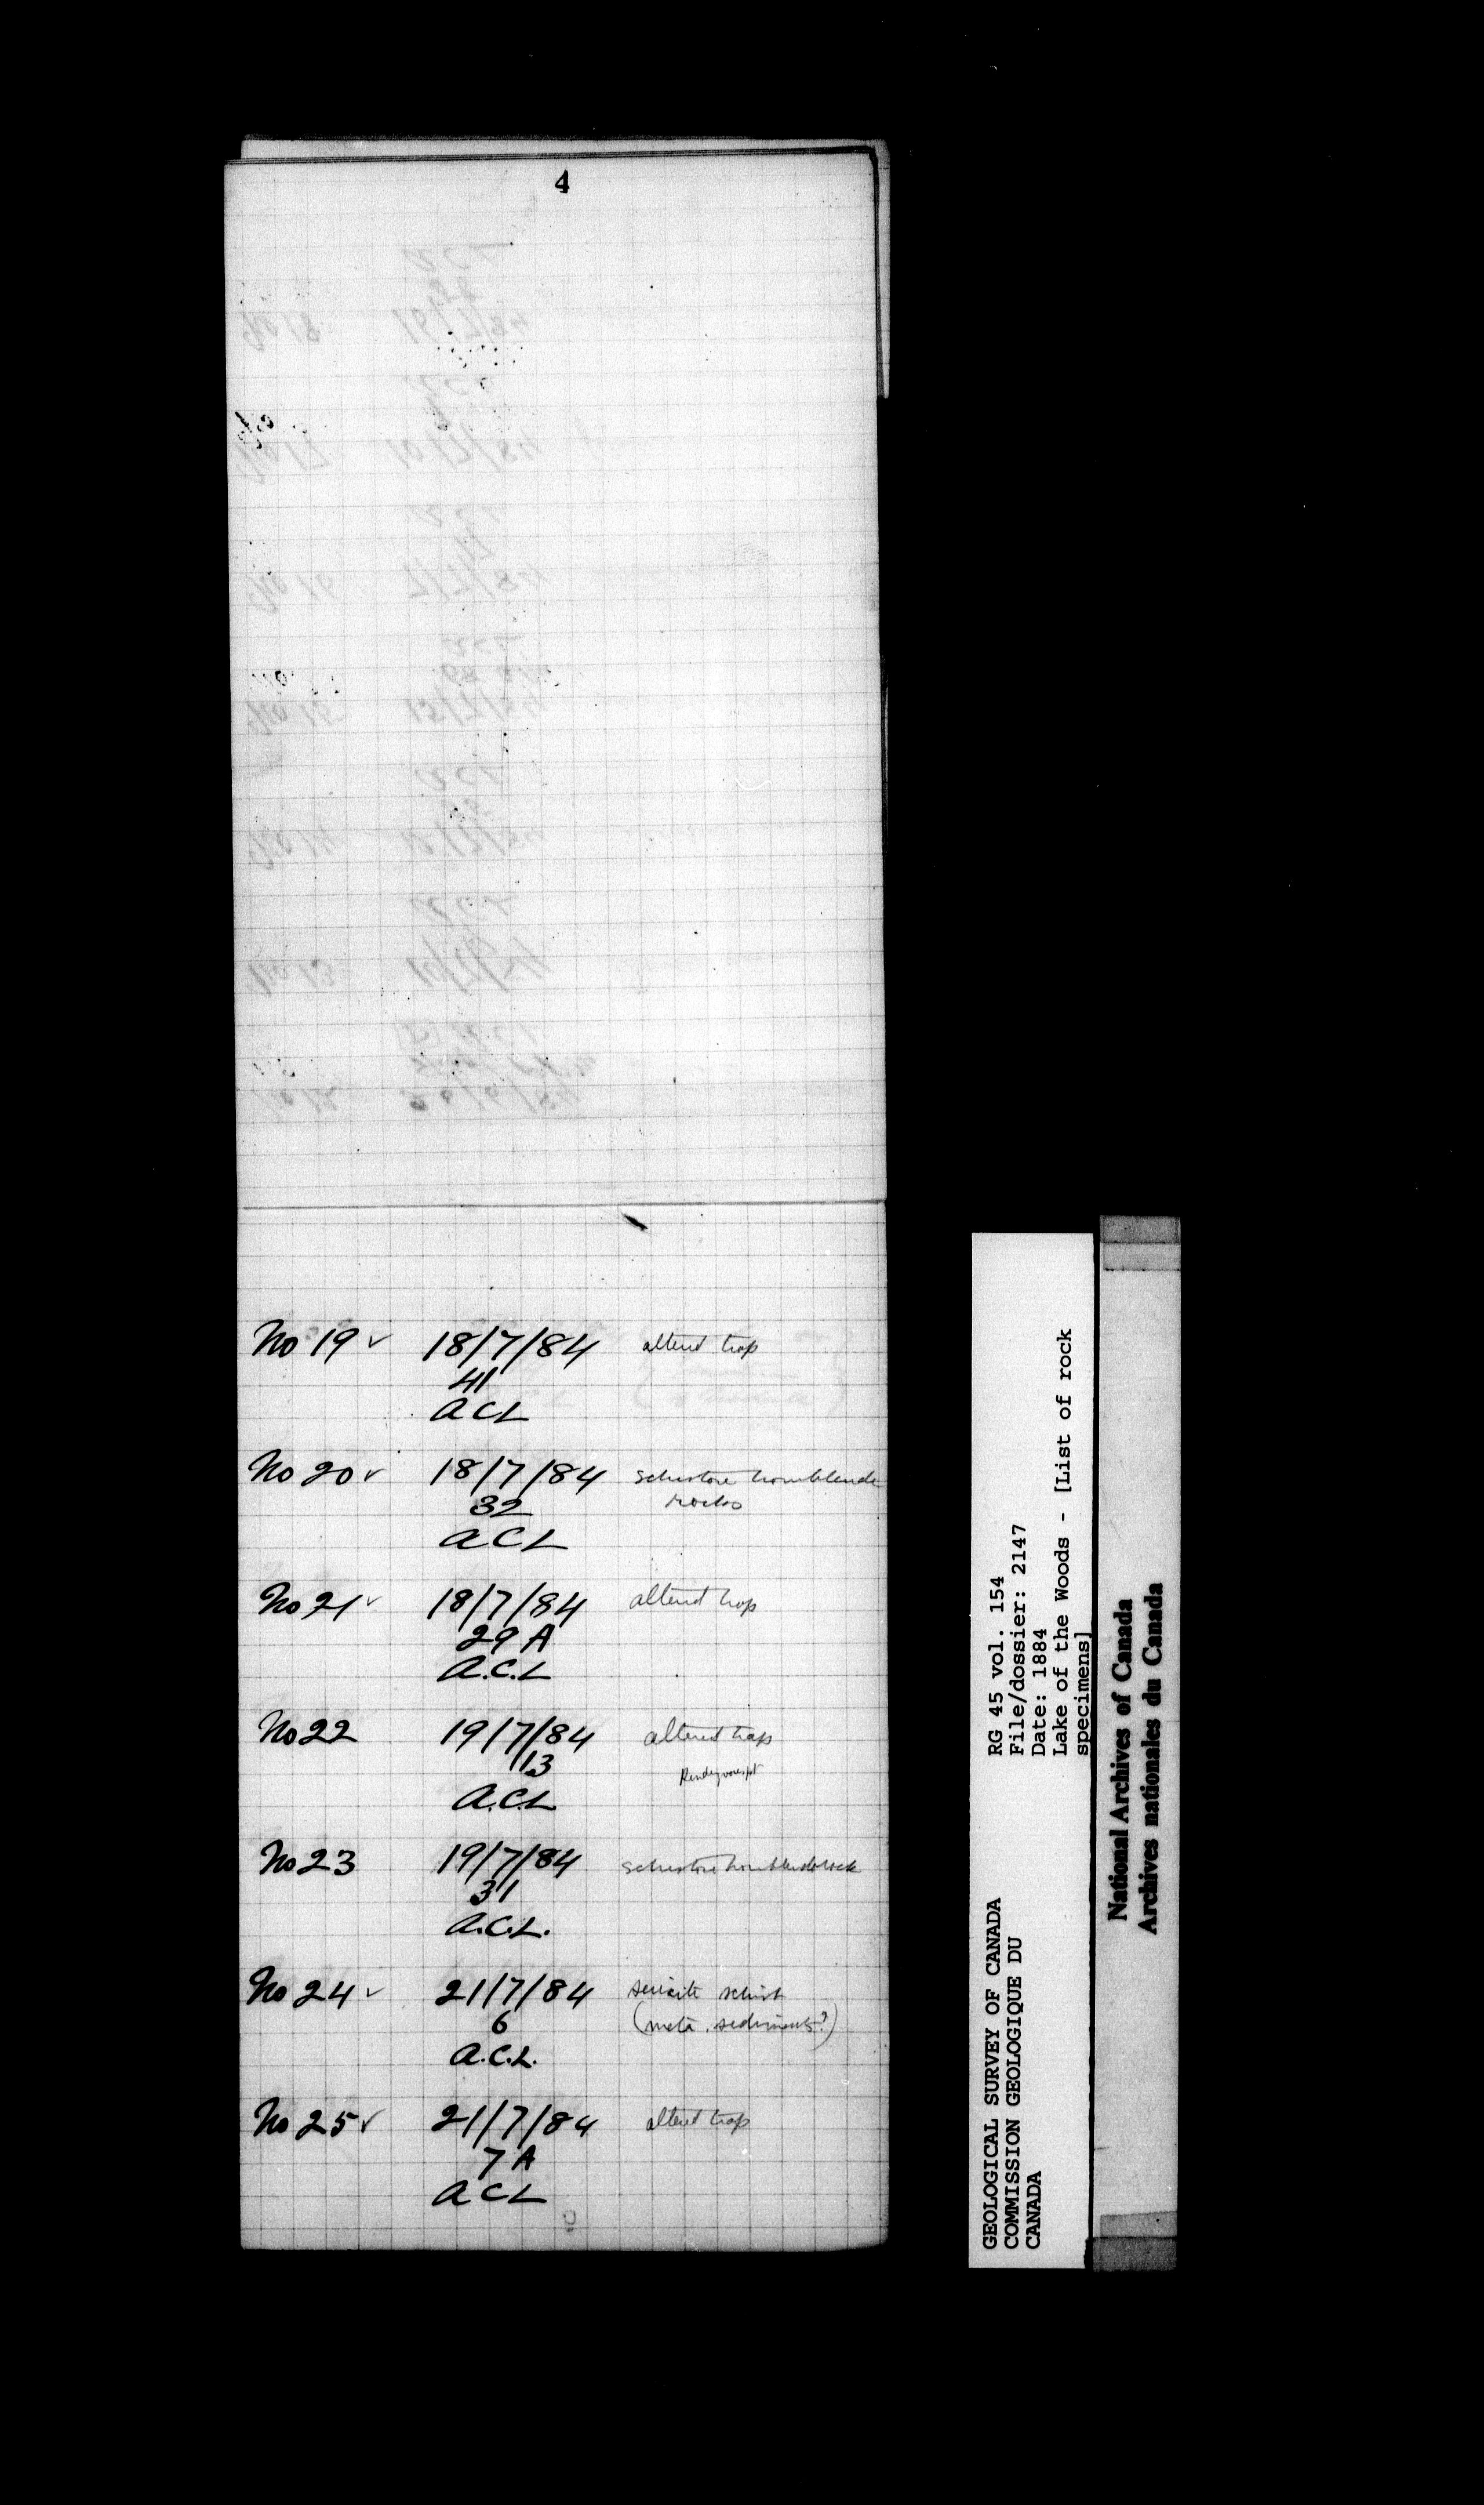 4
No 19 ✓ 18/7/84 altered trap
41
ACL
No 20 ✓ 18/7/84 schistose hornblende
32 rocks
ACL
No 21 ✓ 18/7/84 altered trap
29 A
A.C.L
No 22 19/7/84 altered trap
13 Rendezvous pt
A.C.L
No 23 19/7/84 schistose hornblende rock
31
A.C.L.
No 24 ✓ 21/7/84 sericite schist
6 (meta. sediments?)
A.C.L.
No 25 ✓ 21/7/84 altered trap
7 A
ACL
GEOLOGICAL SURVEY OF CANADA RG 45 vol. 154
COMMISSION GEOLOGIQUE DU File/dossier: 2147
CANADA Date: 1884
Lake of the Woods - [List of rock
specimens]
National Archives of Canada
Archives nationales du Canada